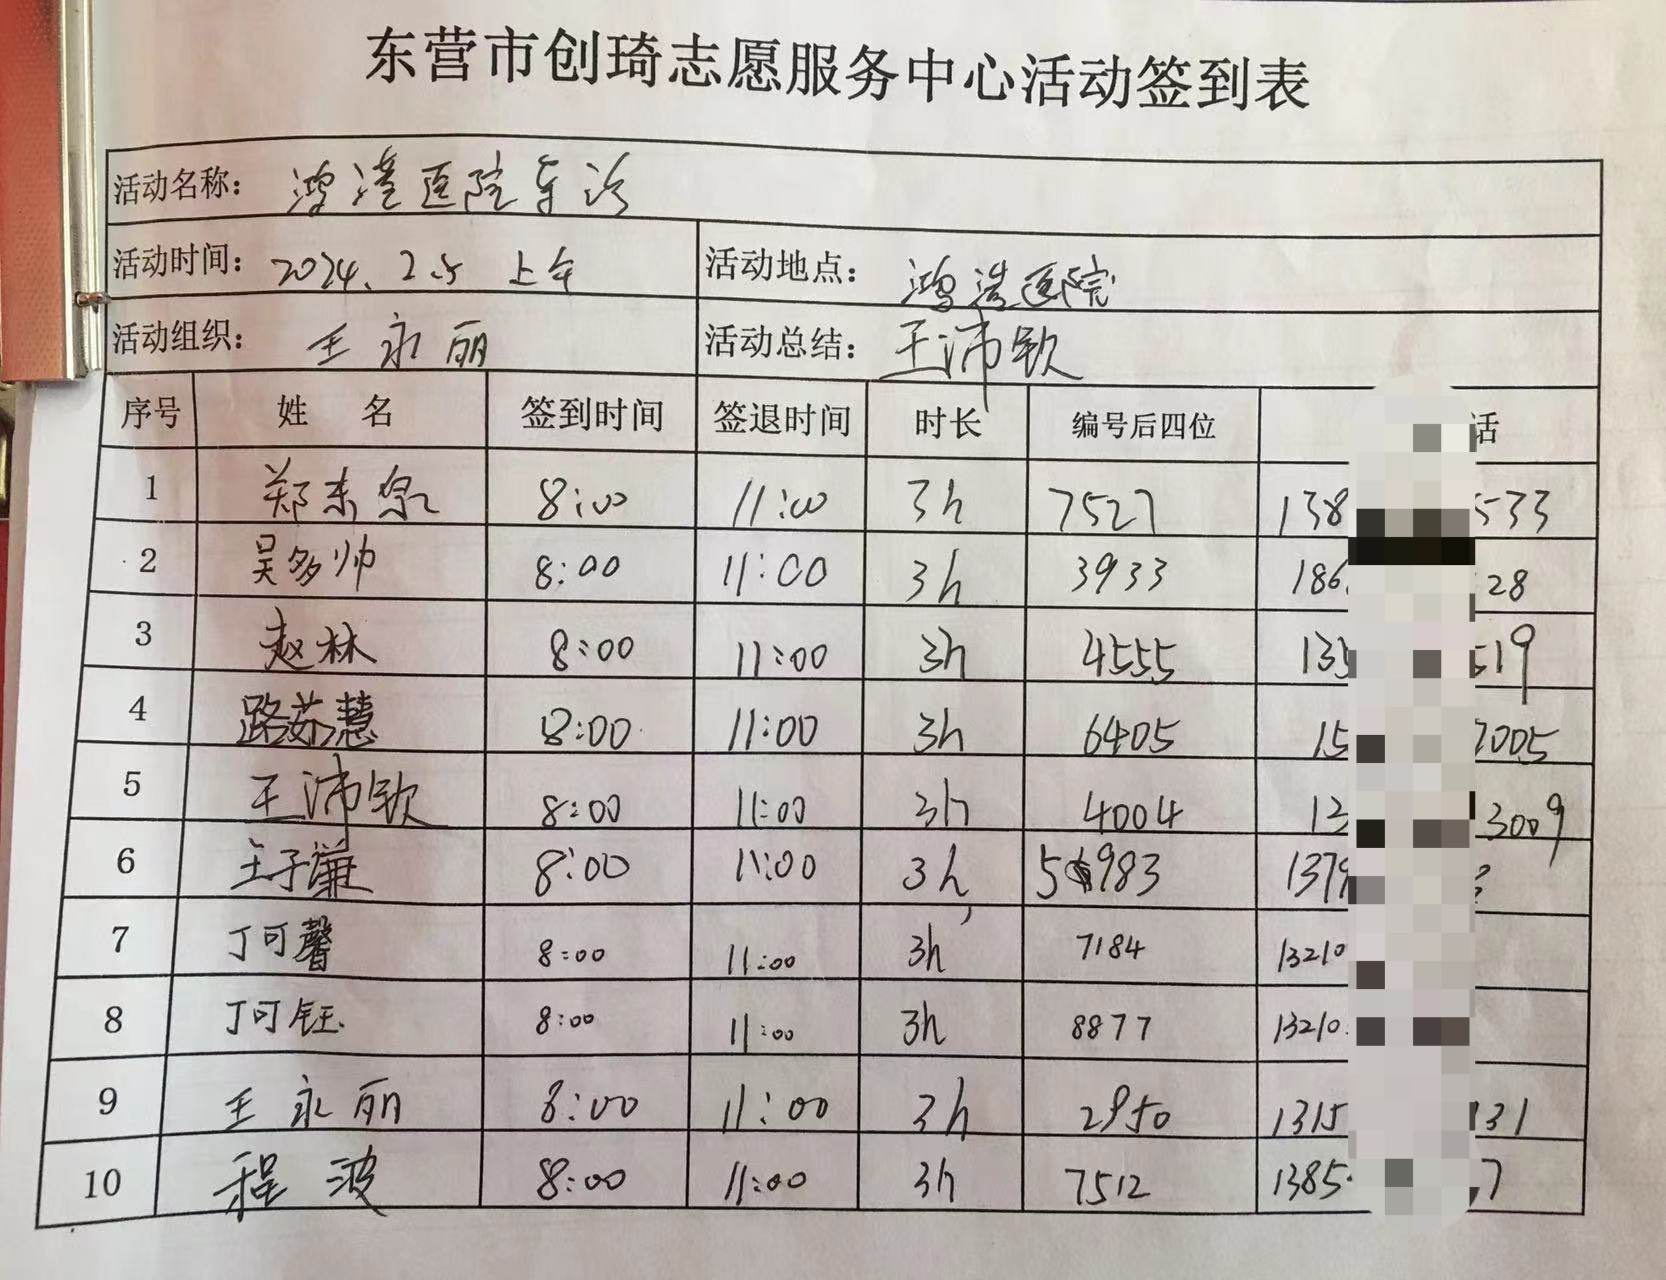 东营市创琦志愿服务中心活动签到表
活动名称： 鸿港医院车诊
活动时间： 2024.2.5 上午 活动地点： 鸿港医院
活动组织： 王永丽 活动总结： 王沛钦
序号 姓名 签到时间 签退时间 时长 编号后四位 话
1 郑东泉 8:00 11:00 3h 7527 138 533
2 吴多帅 8:00 11:00 3h 3933 186 28
3 赵林 8:00 11:00 3h 4555 135 519
4 路茹慧 8:00 11:00 3h 6405 15 7005
5 王沛钦 8:00 11:00 3h 4004 13 3009
6 王子谦 8:00 11:00 3h 983 1379
7 丁可馨 8:00 11:00 3h 7184 13210
8 丁可钰 8:00 11:00 3h 8877 13210
9 王永丽 8:00 11:00 3h 2950 1315 131
10 程波 8:00 11:00 3h 7512 1385 7